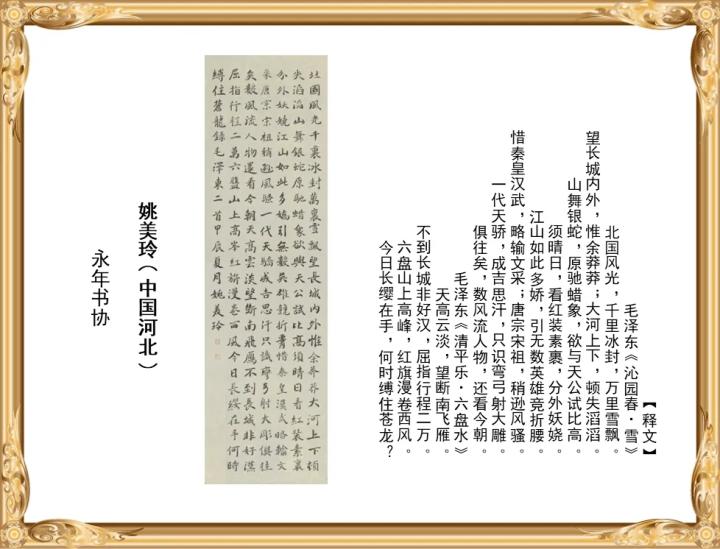 【释文】
毛泽东《沁园春·雪》
北国风光，千里冰封，万里雪飘。
望长城内外，惟余莽莽；大河上下，顿失滔滔。
山舞银蛇，原驰蜡象，欲与天公试比高。
须晴日，看红装素裹，分外妖娆。
江山如此多娇，引无数英雄竞折腰。
惜秦皇汉武，略输文采；唐宗宋祖，稍逊风骚。
一代天骄，成吉思汗，只识弯弓射大雕。
俱往矣，数风流人物，还看今朝。
毛泽东《清平乐·六盘水》
天高云淡，望断南飞雁。
不到长城非好汉，屈指行程二万。
六盘山上高峰，红旗漫卷西风。
今日长缨在手，何时缚住苍龙？
北國風光千裏冰封萬裏雪飄望長城内外惟余莽莽大河上下頓
失滔滔山舞銀蛇原馳蜡象欲與天公試比高須晴日看紅装素裹
分外妖嬈江山如此多嬌引無數英雄競折腰惜秦皇漢武略輸文
采唐宗宋祖稍遜風騷一代天驕成吉思汗只識彎弓射大雕俱往
矣數風流人物還看今朝天高雲淡望斷南飛雁不到長城非好漢
屈指行程二萬六盤山上高峰紅旗漫卷西風今日長纓在手何時
縛住蒼龍錄毛澤東二首甲辰夏月姚美玲
姚美玲（中国河北）
永年书协